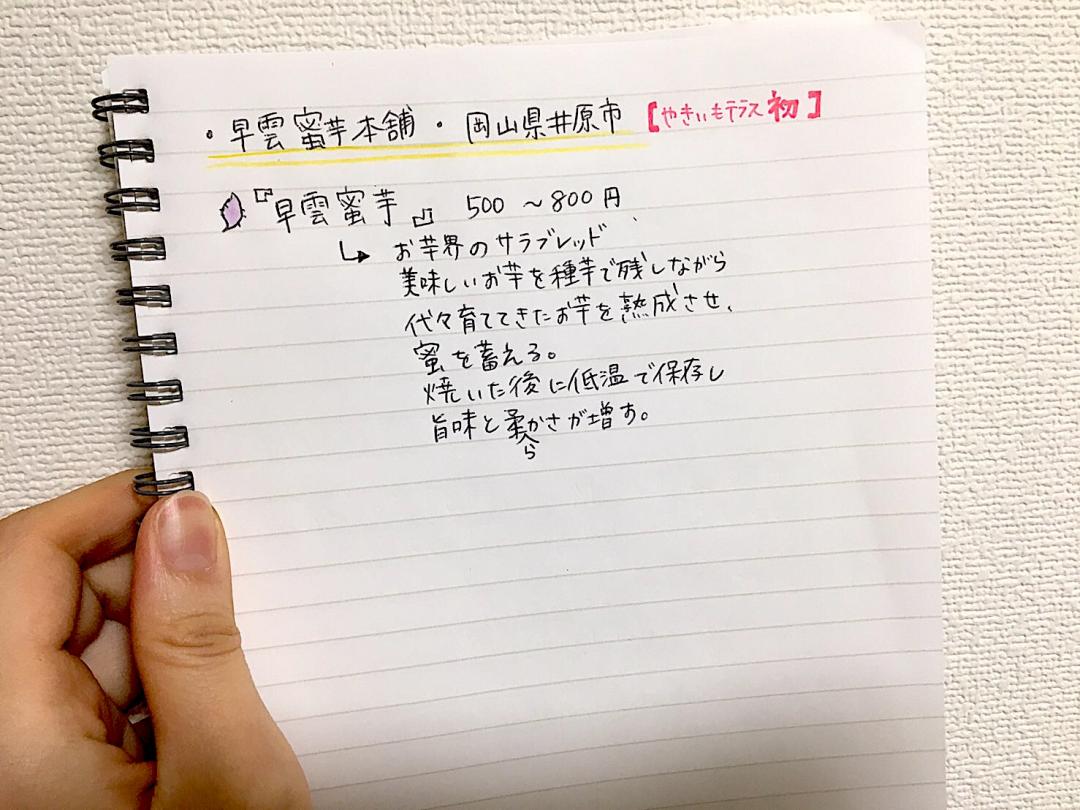 ・早雲蜜芋本舗・岡山県井原市【やきいもテラス初】
『早雲蜜芋』 500〜800円
↳お芋界のサラブレッド
美味しいお芋を種芋で残しながら
代々育ててきたお芋を熟成させ、
蜜を蓄える。
焼いた後に低温で保存し
旨味と柔らかさが増す。